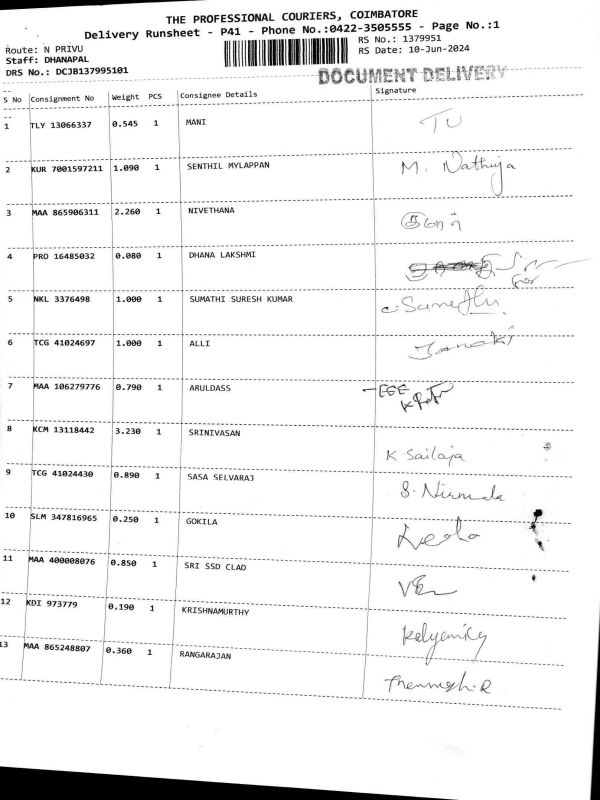 THE PROFESSIONAL COURIERS, COIMBATORE
Delivery Runsheet - P41 - Phone No.:0422-3505555 - Page No.:1
Route: N PRIVU
RS No.: 1379951
Staff: DHANAPAL
RS Date: 10-Jun-2024
DRS No.: DCJB137995101
DOCUMENT DELIVERY
S No Consignment No Weight PCS Consignee Details Signature
1 TLY 13066337 0.545 1 MANI
2 KUR 7001597211 1.090 1 SENTHIL MYLAPPAN M. Nathiya
3 MAA 865906311 2.260 1 NIVETHANA
4 PRO 16485032 0.080 1 DHANA LAKSHMI for
5 NKL 3376498 1.000 1 SUMATHI SURESH KUMAR
6 TCG 41024697 1.000 1 ALLI Janaki
7 MAA 106279776 0.790 1 ARULDASS
8 KCM 13118442 3.230 1 SRINIVASAN K Sailaja
9 TCG 41024430 0.890 1 SASA SELVARAJ S. Nirmala
10 SLM 347816965 0.250 1 GOKILA
11 MAA 400008076 0.850 1 SRI SSD CLAD
12 KDI 973779 0.190 1 KRISHNAMURTHY
13 MAA 865248807 0.360 1 RANGARAJAN